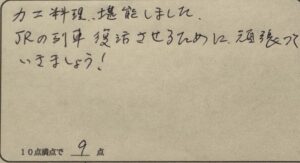 カニ料理、堪能しました。
JRの列車 復活させるために、頑張って
いきましょう!
10点満点で 9 点